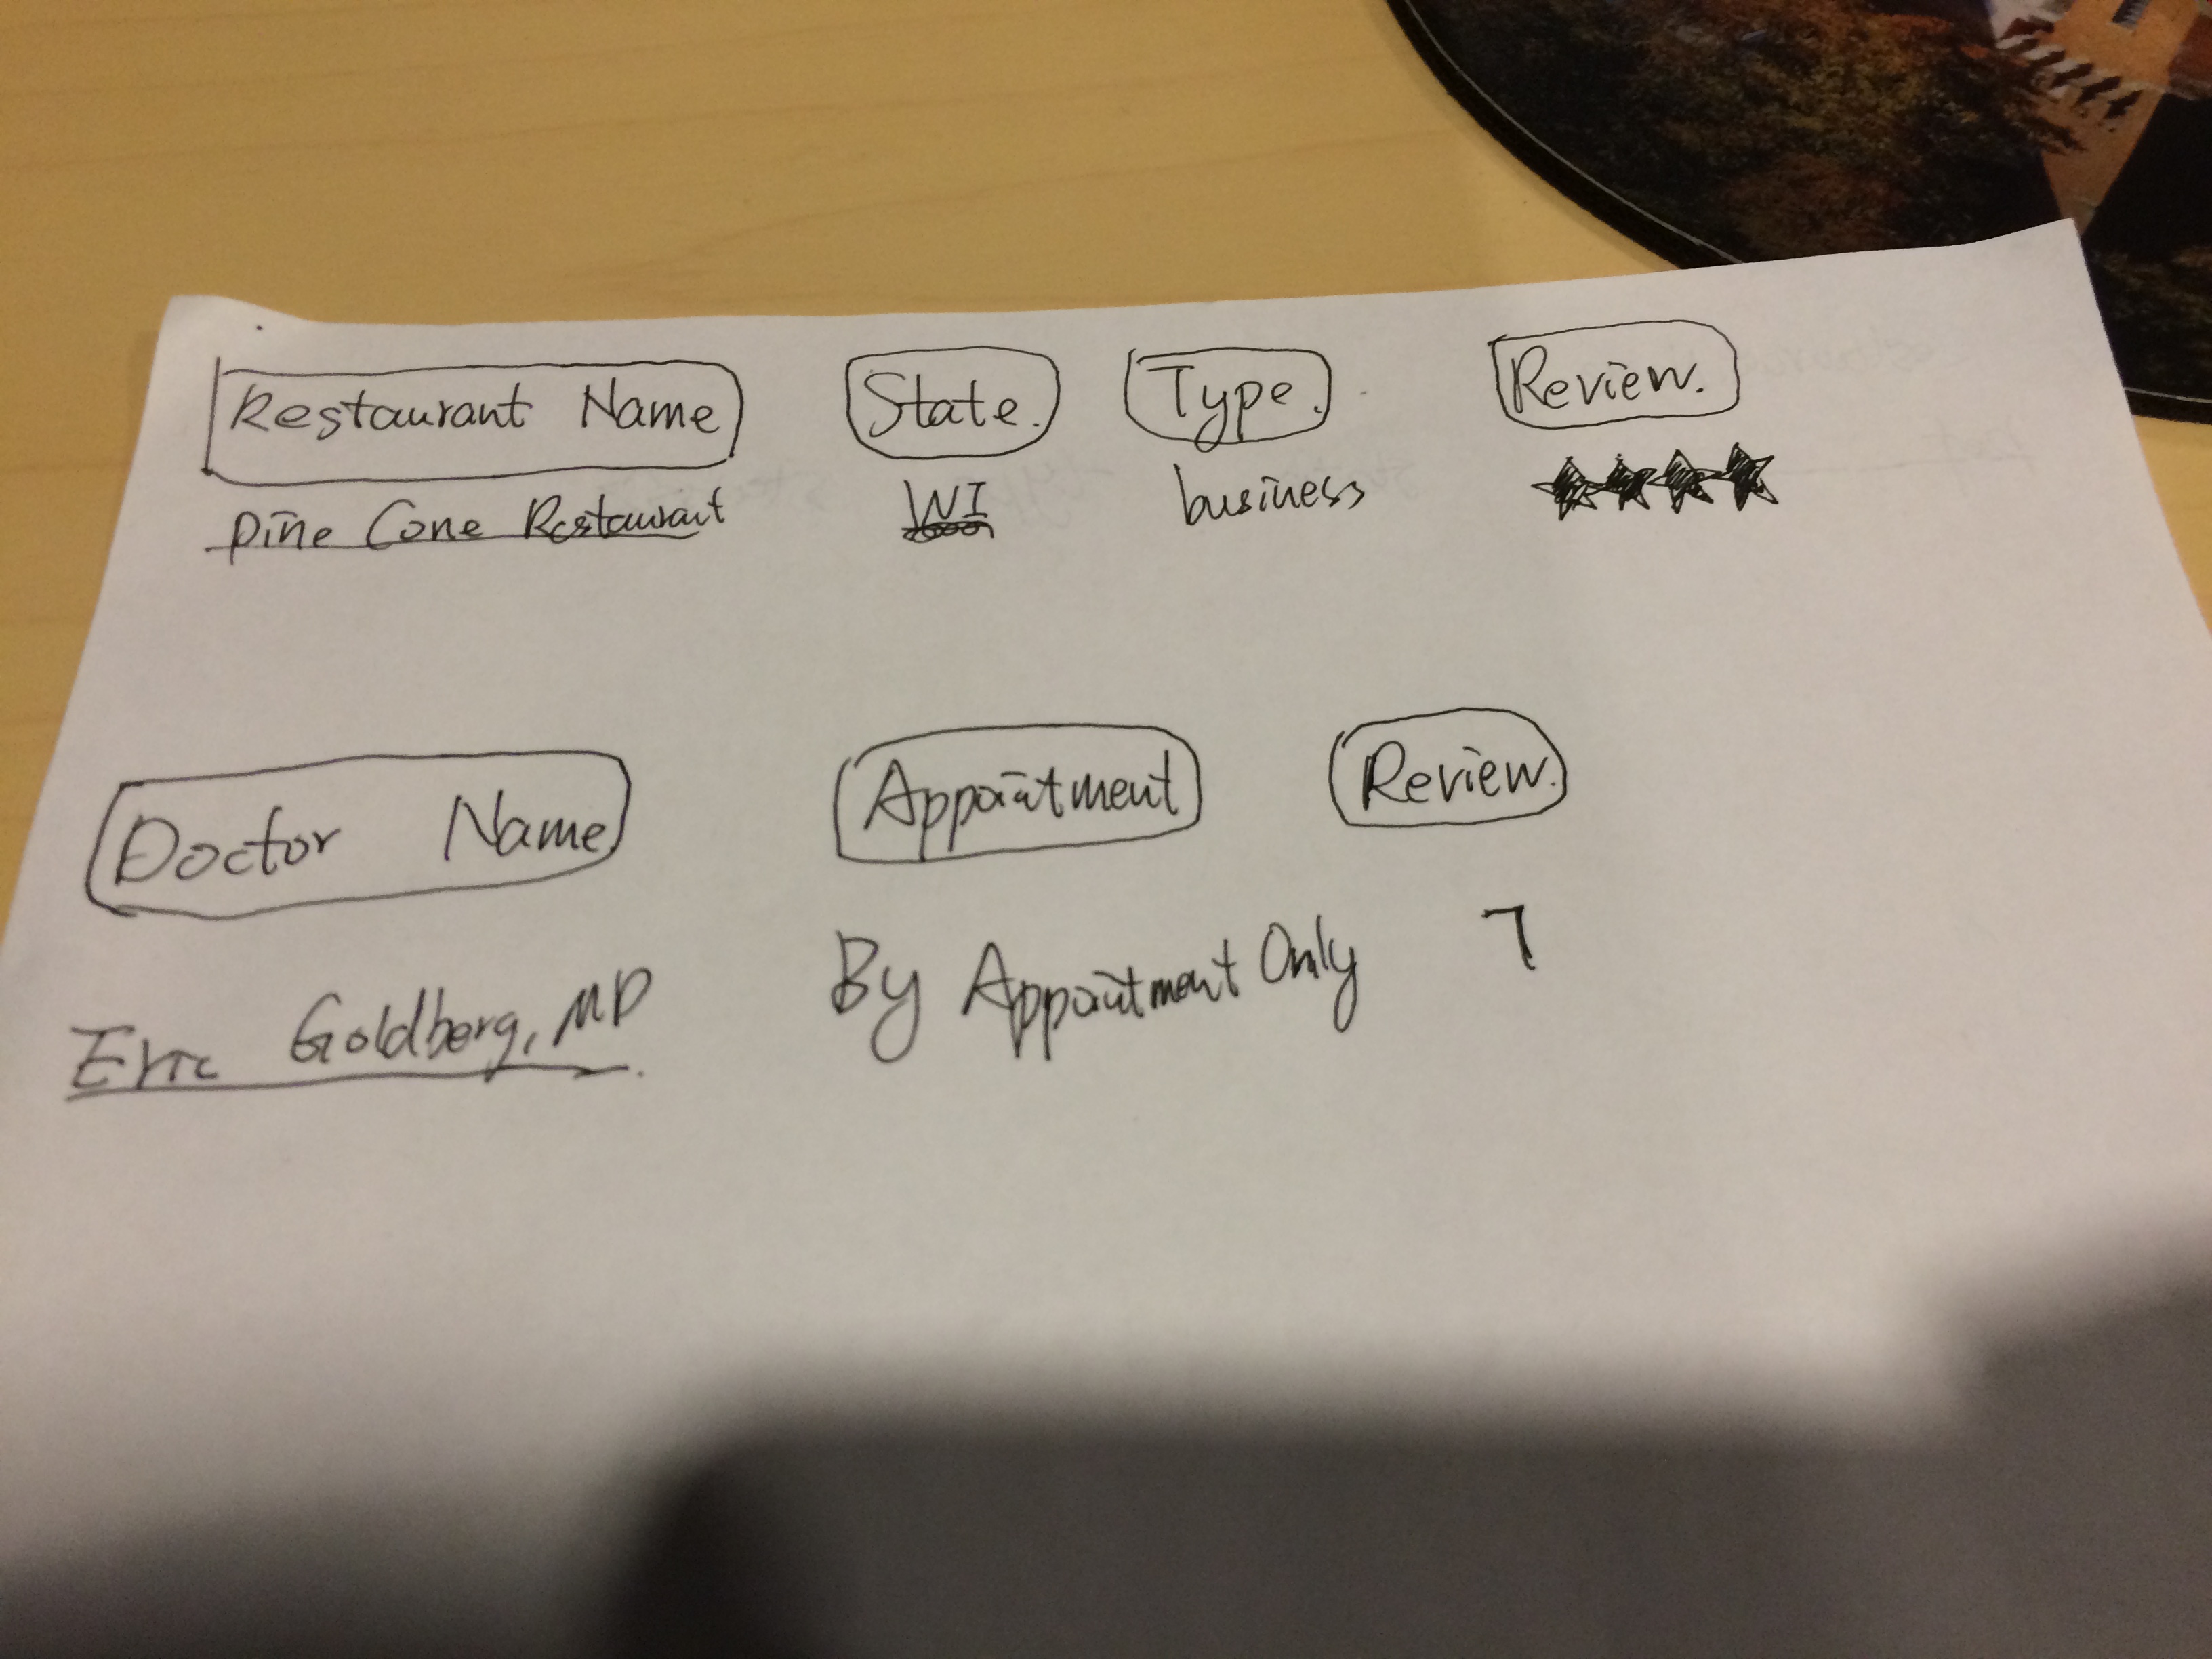 Restaurant Name State. Type. Review.
Pine Cone Restaurant WI business ★★★★
Doctor Name Appointment Review.
Eric Goldberg, MD. By Appointment Only 7